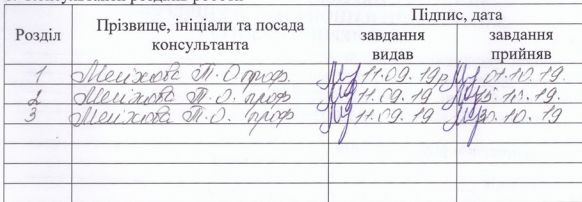 Розділ Прізвище, ініціали та посада консультанта Підпис, дата
завдання видав завдання прийняв
1 Меліхова Т.О проф. 11.09.19р 01.10.19.
2 Меліхова Т.О. проф 11.09.19 15.10.19.
3 Меліхова Т.О. проф 11.09.19 30.10.19